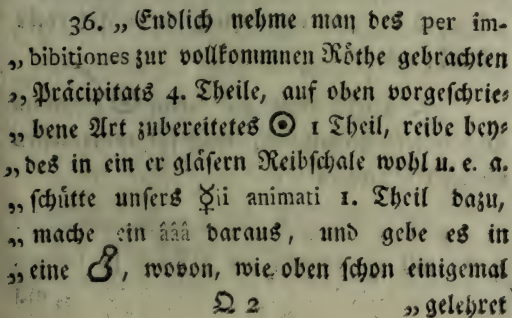 36. „ Endlich nehme man des per im-
„ bibitiones zur vollkommnen Röthe gebrachten
„ Präcipitats 4. Theile, auf oben vorgeschrie-
„ bene Art zubereitetes ☉ 1 Theil, reibe bey-
„ des in ein er gläsern Reibschale wohl u. e. a.
„ schütte unsers ☿ii animati 1. Theil dazu,
„ mache ein âââ daraus, und gebe es in
„ eine , wovon, wie oben schon einigemal
Q 2 „ gelehret